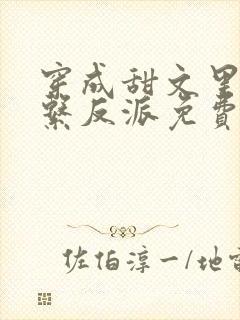 穿成甜文里
系反派免费
佐伯淳一/地